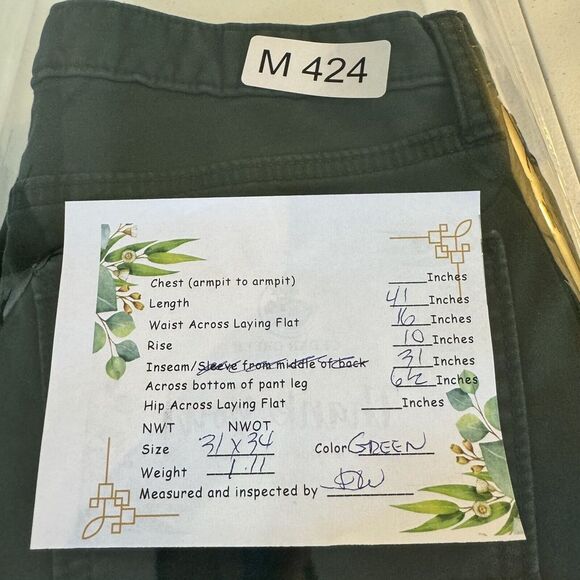 M 424
Chest (armpit to armpit) ____Inches
Length 41 Inches
Waist Across Laying Flat 16 Inches
Rise 10 Inches
Inseam/Sleeve from middle of back 31 Inches
Across bottom of pant leg 6½ Inches
Hip Across Laying Flat ____Inches
NWT NWOT
Size 31 x 34 Color GREEN
Weight 1.11
Measured and inspected by